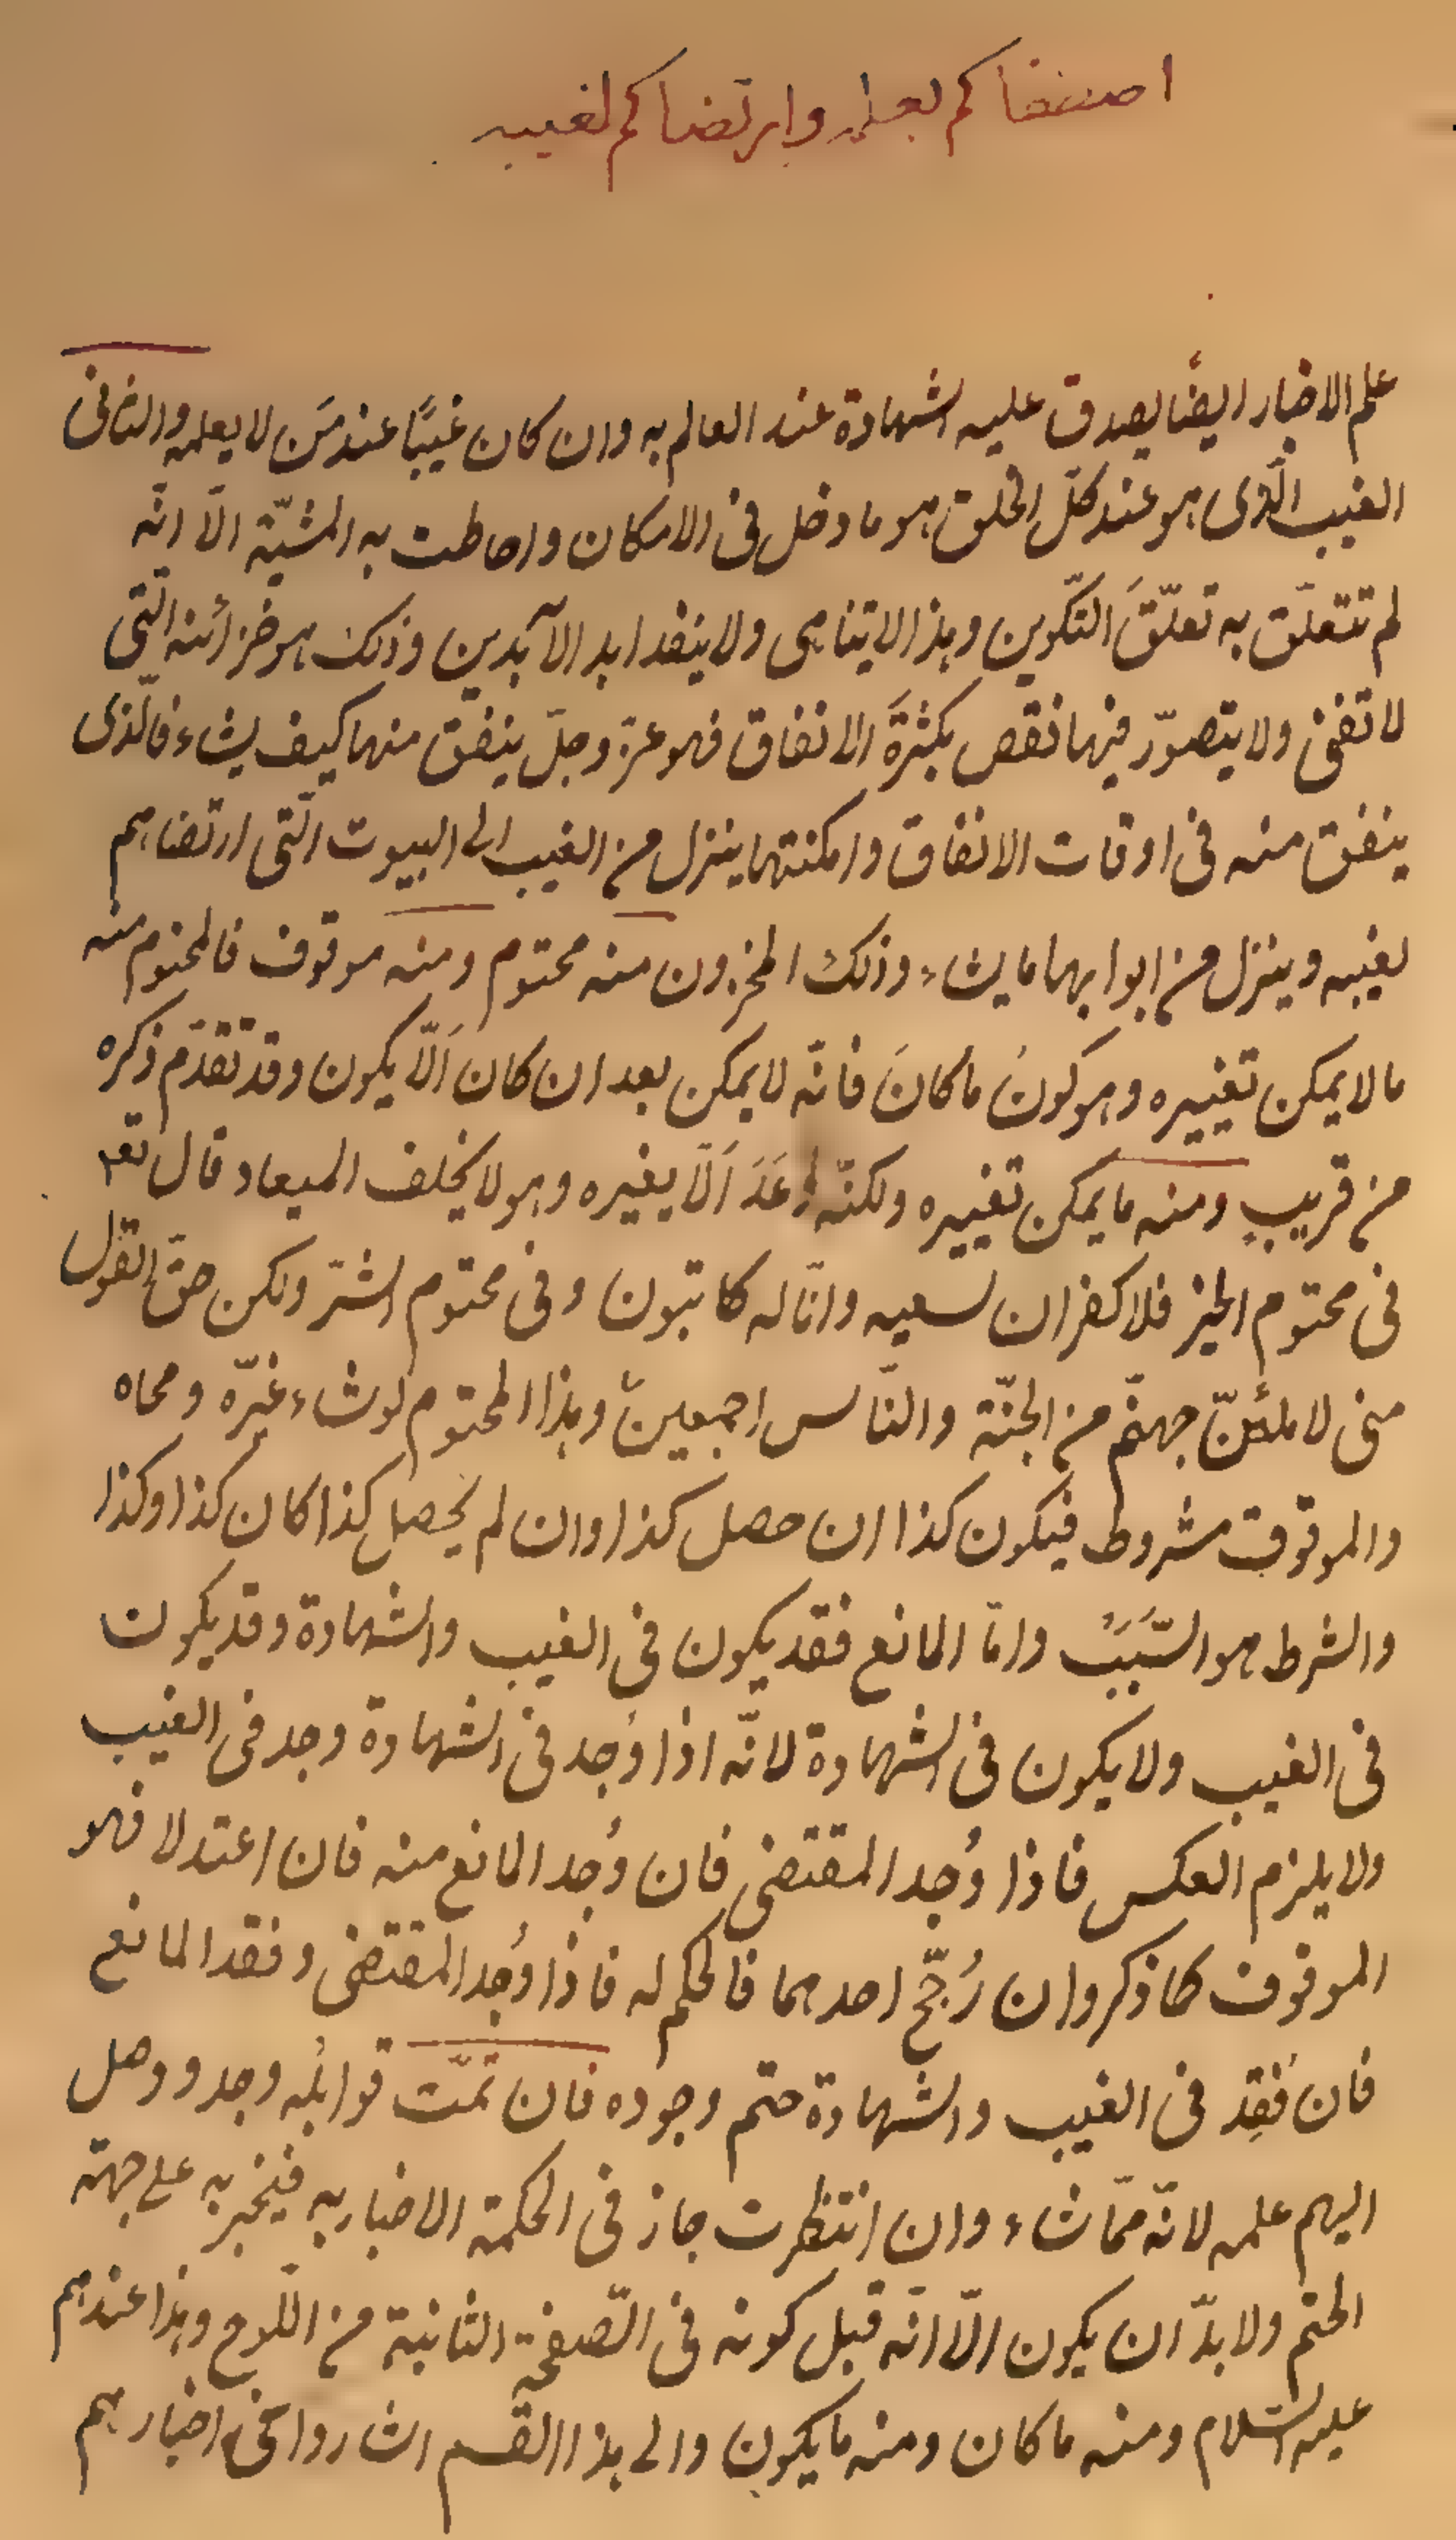 اصطفاكم بعلمه وارتضاكم لغيبه
علم الاخبار ايضًا يصدق عليه الشهادة عند العالم به وان كان غيبًا عند مَن لا يعلمه والثانى
الغيب الّذى هو عند كلّ الخلق هو ما دخل فى الامكان واحاطت به المشيّة الّا انّه
لم تتعلّق به تعلّقَ التّكوين وهذا لا يتناهى ولا ينفد ابد الآبدين وذلك هو خزائنه الّتى
لا تفنى ولا يتصوّر فيها نقص بكثرة الانفاق فهو عزّ وجلّ ينفق منها كيف يشاء فالّذى
ينفق منه فى اوقات الانفاق وامكنتها ينزل من الغيب الى البيوت الّتى ارتضاهم
لغيبه وينزل من ابوابها ما يشاء وذلك المخزون منه محتوم ومنه موقوف فالمحتوم منه
ما لا يمكن تغييره وهو كونُ ما كانَ فانّه لا يمكن بعد ان كان اَلّا يكون وقد تقدّم ذكره
من قريبٍ ومنه ما يمكن تغييره ولكنّه وَعَدَ اَلّا يغيره وهو لا يخلف الميعاد قال تعه
فى محتوم الخير فلا كفران لسعيه وانّا له كاتبون وفى محتوم الشرّ ولكن حقّ القول
منى لاملئنّ جهنّم من الجنّة والنّاس اجمعين وهذا المحتوم لو شاء غيّره ومحاه
والموقوف مشروط فيكون كذا ان حصل كذا وان لم يحصل كذا كان كذا وكذا
والشرط هو السَّبَبُ وامّا المانع فقد يكون فى الغيب والشهادة وقد يكون
فى الغيب ولا يكون فى الشهادة لانّه اذا وُجد فى الشهادة وجد فى الغيب
ولا يلزم العكس فاذا وُجد المقتضى فان وُجد المانع منه فان اعتدلا فهو
الموقوف كما ذكر وان رُجّح احدهما فالحكم له فاذا وُجد المقتضى وفقد المانع
فان فُقِد فى الغيب والشهادة حتم وجوده فان تمّت قوابلُه وجد ووصل
اليهم علمه لانّه ممّا شاء وان انتظرت جاز فى الحكمة الاخبار به فيخبر به على جهة
الحتم ولا بدّ ان يكون الّا انّه قبل كونه فى الصّفحة الثانية من اللّوح وهذا عندهم
عليهم السّلام ومنه ما كان ومنه ما يكون والى هذا القسم اشاروا فى اخبارهم